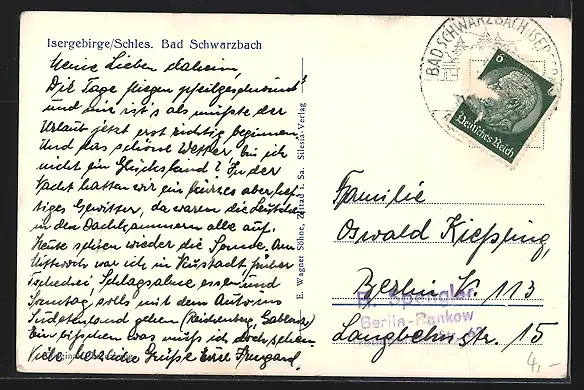 Isergebirge/Schles. Bad Schwarzbach
Meine Lieben daheim,
Die Tage fliegen pfeilgeschwind
und mir ist's als müsste der
Urlaub jetzt erst richtig beginnen.
Und das schöne Wetter, bin ich
nicht ein Glückskind? In der
Nacht hatten wir ein kurzes aber hef-
tiges Gewitter, da waren die Leutchen
in den Dachkammern alle auf.
Heute schien wieder die Sonne. Am
Mittwoch war ich in Neustadt, früher
Tschechei, Schlagsahne essen und
Samstag solls mit dem Auto ins
Sudetenland gehen (Reichenberg, Gablonz)
Ein bisschen was muß ich doch sehen.
Viele herzliche Grüße Eure Irmgard.
E. Wagner Söhne, Zittau i. Sa. Silesia-Verlag
BAD SCHWARZBACH
6
Deutsches Reich
Familie
Oswald Kießling,
Berlin N. 113
Langbehnstr. 15
Spengler
Berlin-Pankow
4,-